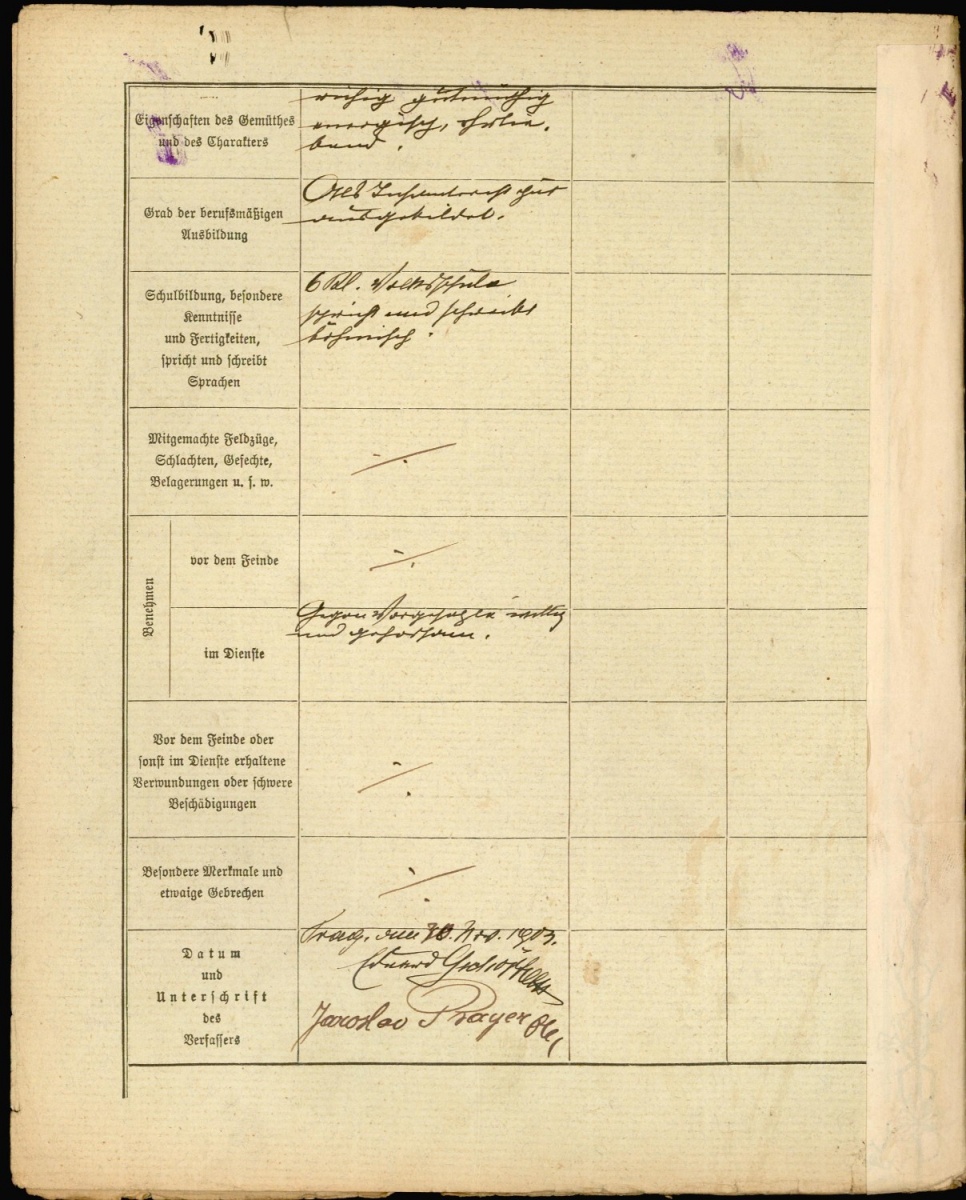 Eigenschaften des Gemüthes
und des Charakters
ruhig gutmüthig
energisch, ehrlie-
bend.
Grad der berufsmäßigen
Ausbildung
Als Infanterist gut
ausgebildet.
Schulbildung, besondere
Kenntnisse
und Fertigkeiten,
spricht und schreibt
Sprachen
6 Kl. Volksschule
spricht und schreibt
böhmisch.
Mitgemachte Feldzüge,
Schlachten, Gefechte,
Belagerungen u. s. w.
Benehmen
vor dem Feinde
im Dienste
Gegen Vorgesetzte willig
und gehorsam.
Vor dem Feinde oder
sonst im Dienste erhaltene
Verwundungen oder schwere
Beschädigungen
Besondere Merkmale und
etwaige Gebrechen
Datum
und
Unterschrift
des
Verfassers
Prag, am Nov. 1903.
Eduard
Jaroslav Prayer